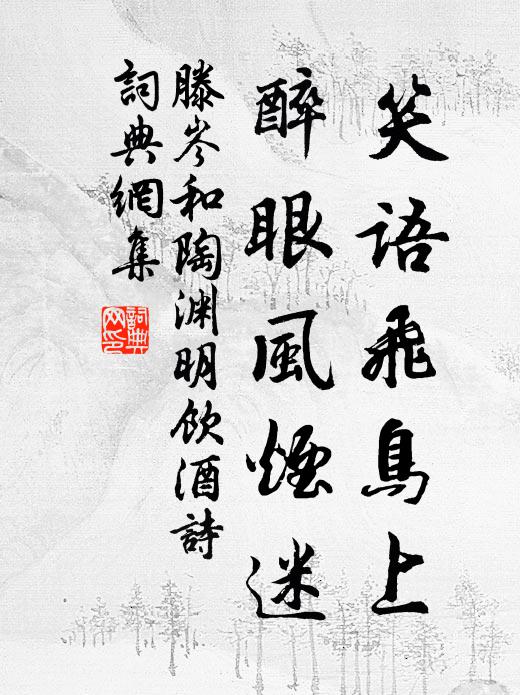 笑語飛鳥上
醉眼風煙迷
滕岑和陶渊明飲酒詩
詞典網集
詞典
网印